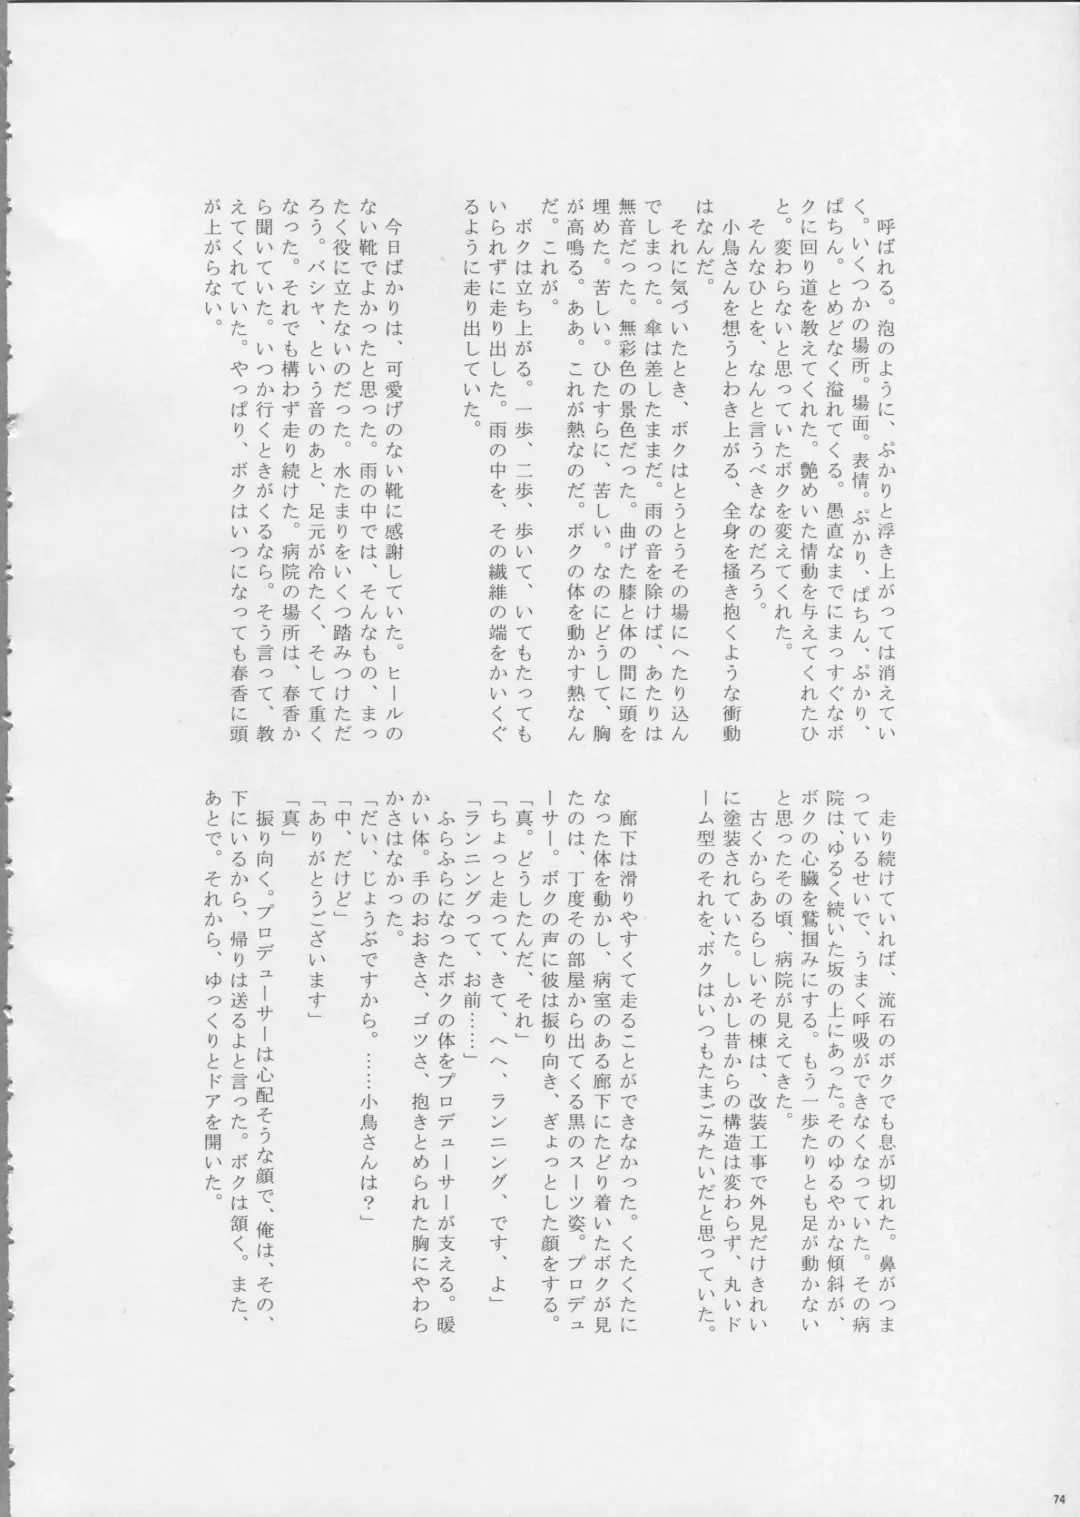 呼ばれる。泡のように、ぷかりと浮き上がっては消えてい
く。いくつかの場所。場面。表情。ぷかり、ぱちん、ぷかり、
ぱちん。とめどなく溢れてくる。愚直なまでにまっすぐなボ
クに回り道を教えてくれた。艶めいた情動を与えてくれたひ
と。変わらないと思っていたボクを変えてくれた。
そんなひとを、なんと言うべきなのだろう。
小鳥さんを想うとわき上がる、全身を掻き抱くような衝動
はなんだ。
それに気づいたとき、ボクはとうとうその場にへたり込ん
でしまった。傘は差したままだ。雨の音を除けば、あたりは
無音だった。無彩色の景色だった。曲げた膝と体の間に頭を
埋めた。苦しい。ひたすらに、苦しい。なのにどうして、胸
が高鳴る。ああ。これが熱なのだ。ボクの体を動かす熱なん
だ。これが。
ボクは立ち上がる。一歩、二歩、歩いて、いてもたっても
いられずに走り出した。雨の中を、その繊維の端をかいくぐ
るように走り出していた。
今日ばかりは、可愛げのない靴に感謝していた。ヒールの
ない靴でよかったと思った。雨の中では、そんなもの、まっ
たく役に立たないのだった。水たまりをいくつ踏みつけただ
ろう。バシャ、という音のあと、足元が冷たく、そして重く
なった。それでも構わず走り続けた。病院の場所は、春香か
ら聞いていた。いつか行くときがくるなら。そう言って、教
えてくれていた。やっぱり、ボクはいつになっても春香に頭
が上がらない。
走り続けていれば、流石のボクでも息が切れた。鼻がつま
っているせいで、うまく呼吸ができなくなっていた。その病
院は、ゆるく続いた坂の上にあった。そのゆるやかな傾斜が、
ボクの心臓を鷲掴みにする。もう一歩たりとも足が動かない
と思ったその頃、病院が見えてきた。
古くからあるらしいその棟は、改装工事で外見だけきれい
に塗装されていた。しかし昔からの構造は変わらず、丸いド
ーム型のそれを、ボクはいつもたまごみたいだと思っていた。
廊下は滑りやすくて走ることができなかった。くたくたに
なった体を動かし、病室のある廊下にたどり着いたボクが見
たのは、丁度その部屋から出てくる黒のスーツ姿。プロデュ
ーサー。ボクの声に彼は振り向き、ぎょっとした顔をする。
「真。どうしたんだ、それ」
「ちょっと走って、きて、へへ、ランニング、です、よ」
「ランニングって、お前……」
ふらふらになったボクの体をプロデューサーが支える。暖
かい体。手のおおきさ、ゴツさ、抱きとめられた胸にやわら
かさはなかった。
「だい、じょうぶですから。……小鳥さんは？」
「中、だけど」
「ありがとうございます」
「真」
振り向く。プロデューサーは心配そうな顔で、俺は、その、
下にいるから、帰りは送るよと言った。ボクは頷く。また、
あとで。それから、ゆっくりとドアを開いた。
74